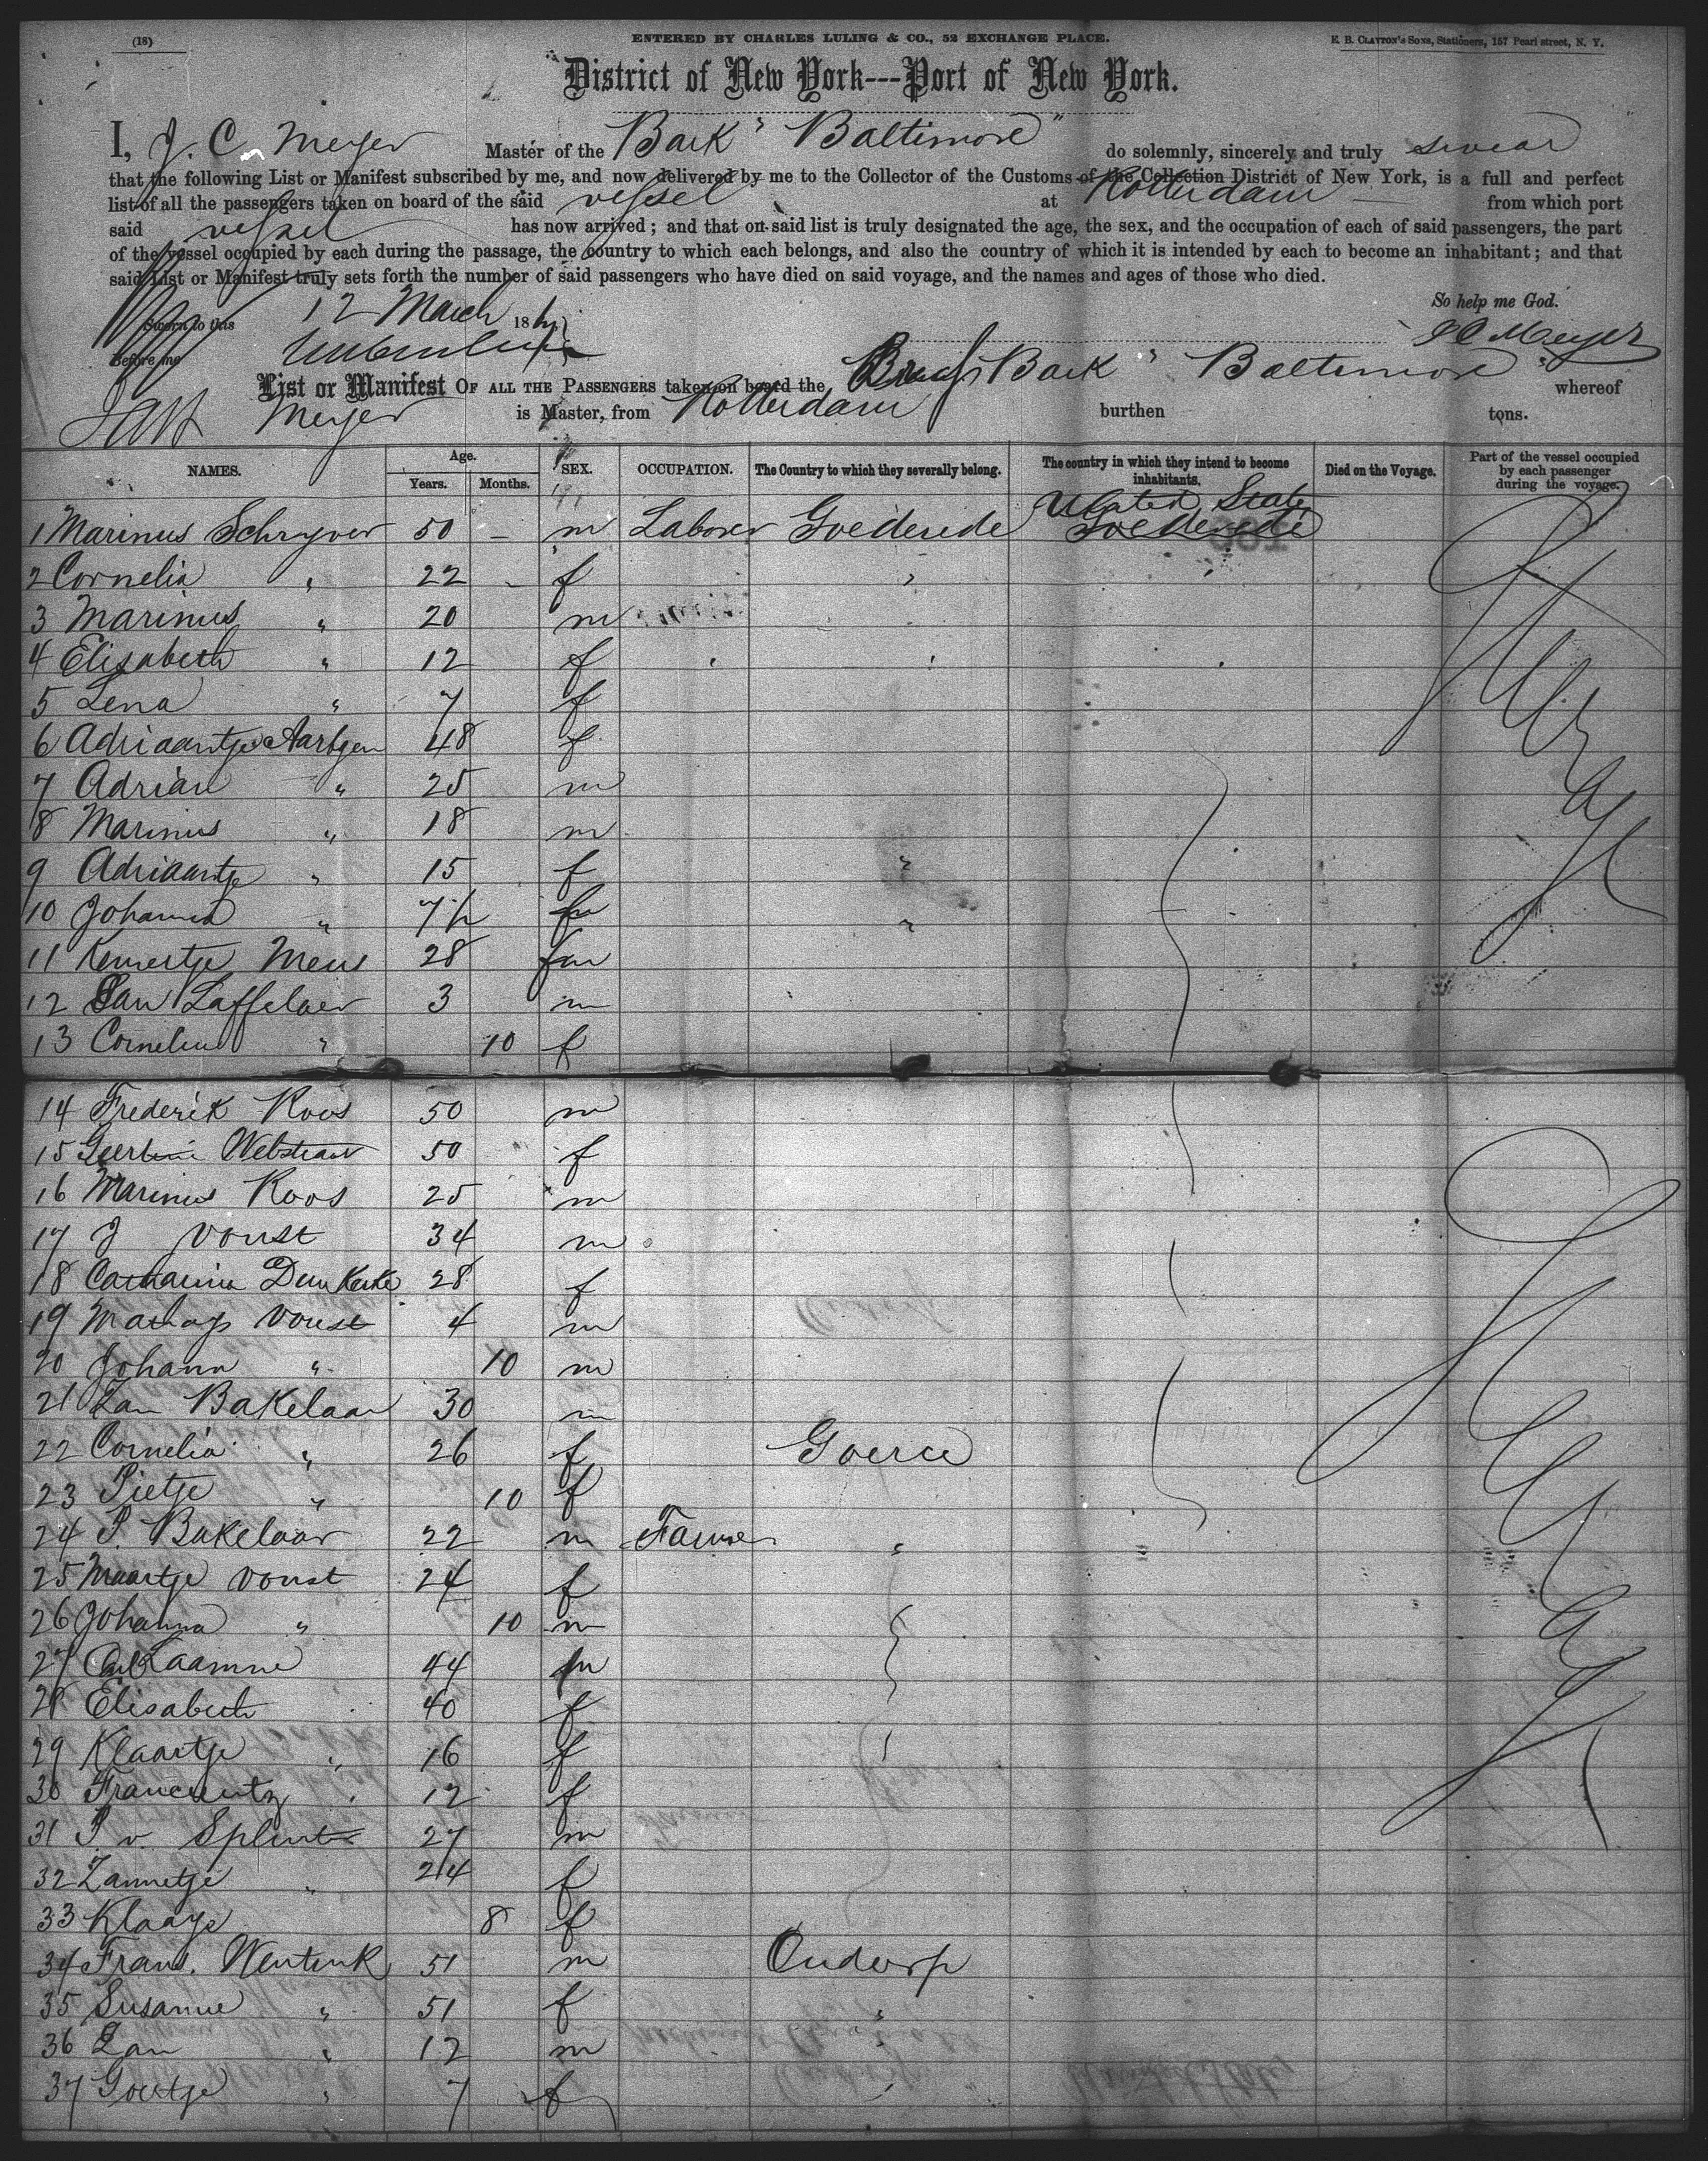 (18)
ENTERED BY CHARLES LULING & CO., 52 EXCHANGE PLACE.
E. B. CLAYTON's Sons, Stationers, 157 Pearl street, N. Y.
District of New York---Port of New York.
I, J. C. Meyer Master of the Bark "Baltimore" do solemnly, sincerely and truly swear
that the following List or Manifest subscribed by me, and now delivered by me to the Collector of the Customs of the Collection District of New York, is a full and perfect
list of all the passengers taken on board of the said vessel at Rotterdam from which port
said vessel has now arrived; and that on said list is truly designated the age, the sex, and the occupation of each of said passengers, the part
of the vessel occupied by each during the passage, the country to which each belongs, and also the country of which it is intended by each to become an inhabitant; and that
said List or Manifest truly sets forth the number of said passengers who have died on said voyage, and the names and ages of those who died.
So help me God.
Sworn to this 12 March 186
J C Meyer
Before me
List or Manifest OF ALL THE PASSENGERS taken on board the Bark "Baltimore" whereof
Meyer is Master, from Rotterdam burthen tons.
NAMES. Age. Years. Months. SEX. OCCUPATION. The Country to which they severally belong. The country in which they intend to become inhabitants. Died on the Voyage. Part of the vessel occupied by each passenger during the voyage.
United State
1 Marinus Schryver 50 - m Laborer Goederede Goederede
2 Cornelia " 22 - f "
3 Marinus " 20 m
4 Elisabeth " 12 f
5 Lena " 7 f
6 Adriaantje Aartgen 48 f
7 Adrian " 25 m
8 Marinus " 18 m
9 Adriaantje " 15 f "
10 Johanna " 7 f "
11 Mens 28
12 Jan Laffelaer 3 m
13 " 10 f
14 Frederik Roos 50 m
15 50 f
16 Marinus Roos 25 m
17 J Vonst 34 m
18 Catharina 28 f
19 Vonst 4 m
20 Johann " 10 m
21 Zan Bakelaar 30 m
22 Cornelia " 26 f Goerce
23 Pietje " 10 f
24 P. Bakelaar 22 m Farmer " "
25 Maartje Vonst 24 f
26 Johanna " 10 m
27 44 m
28 Elisabeth 40 f
29 Klaartje " 16 f
30 12 f
31 P v. Splinter 27 m
32 Zannetje " 24 f
33 Klaaye 8 f
34 Frans. Wentink 51 m Oudorp
35 Susanne " 51 f "
36 Zan " 12 m "
37 Goertje " 7 f "